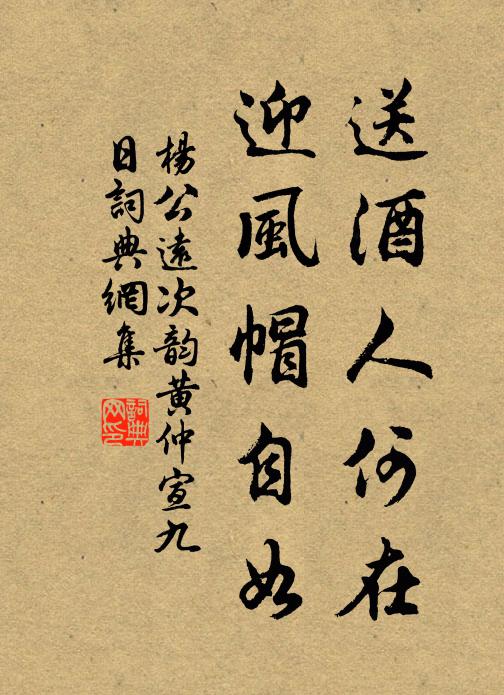 送酒人何在
迎風帽自如
楊公遠次韵黄仲宣九
日詞典網集
詞典
网印